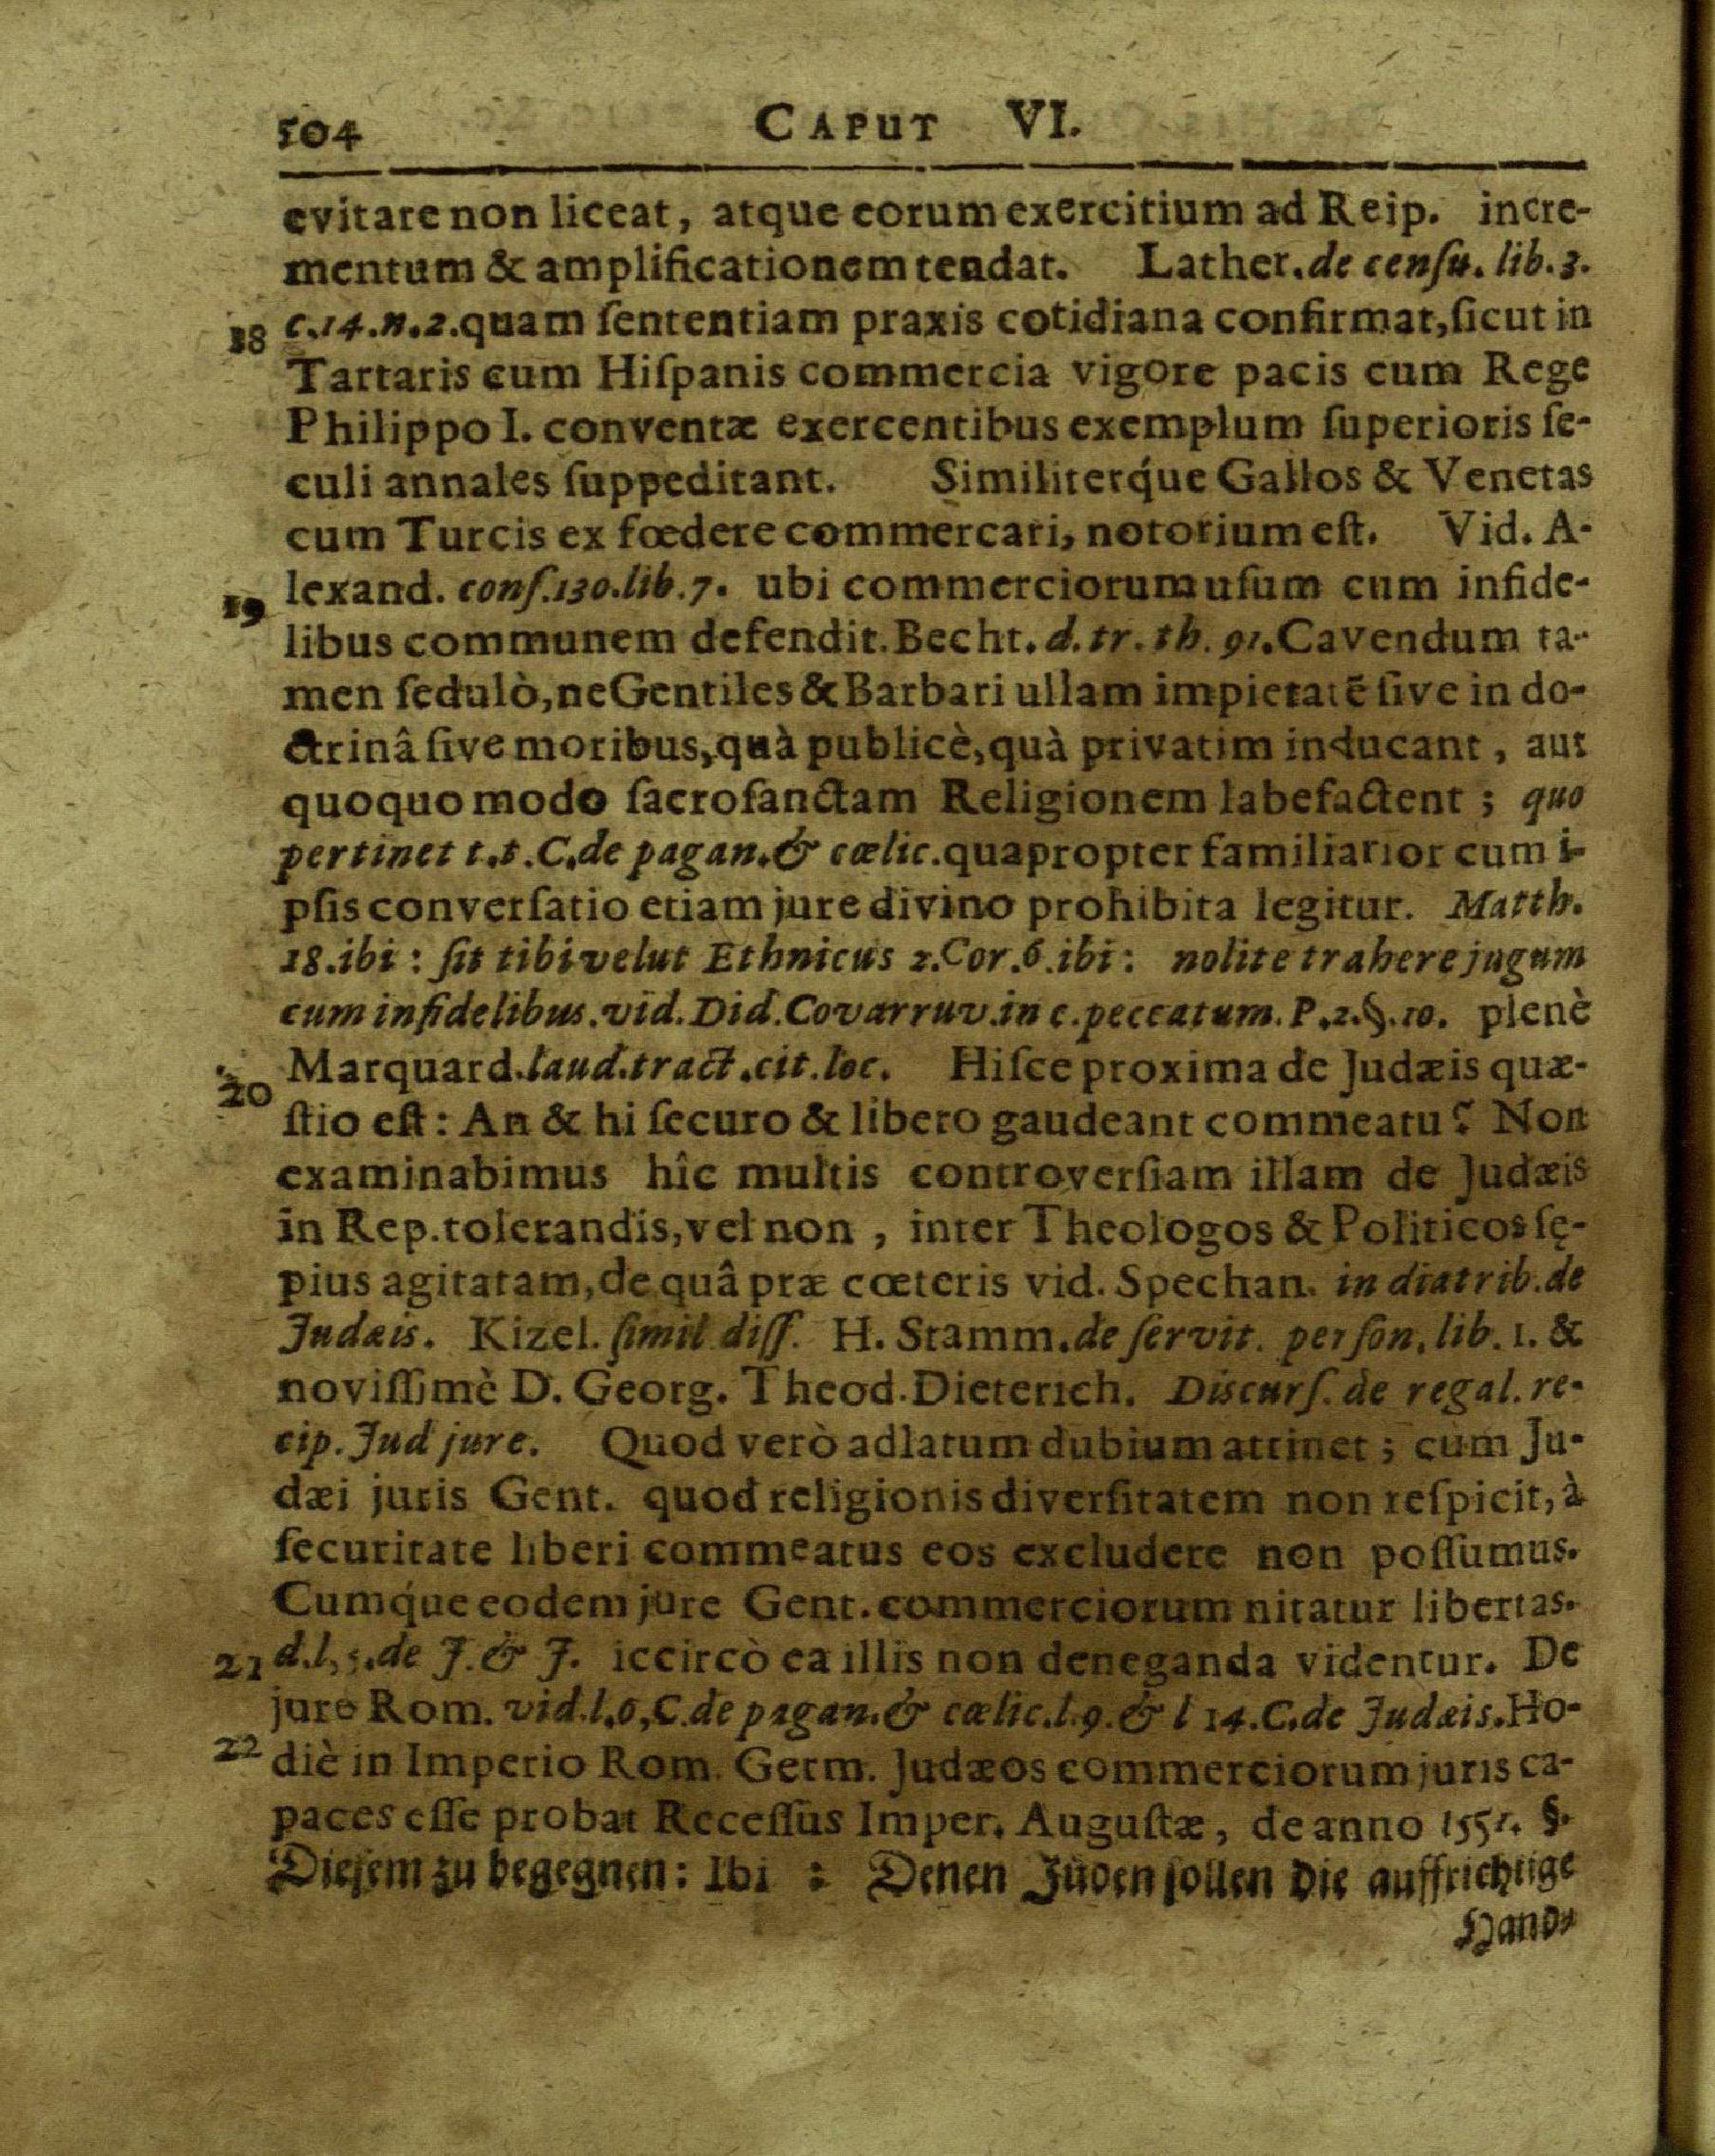 504 CAPUT VI.
evitare non liceat, atque eorum exercitium ad Reip. incre-
mentum & amplificationem tendat. Lather. de censu. lib. 3.
18 c. 14. n. 2. quam ſententiam praxis cotidiana confirmat, ſicut in
Tartaris cum Hiſpanis commercia vigore pacis cum Rege
Philippo I. conventæ exercentibus exemplum ſuperioris ſe-
culi annales ſuppeditant. Similiterq́ue Gallos & Venetas
cum Turcis ex fœdere commercari, notorium eſt. Vid. A-
19 lexand. conſ. 130. lib. 7. ubi commerciorum uſum cum infide-
libus communem defendit. Becht. d. tr. th. 91. Cavendum ta-
men ſedulò, ne Gentiles & Barbari ullam impietatē ſive in do-
ctrinâ ſive moribus, quà publicè, quà privatim inducant, aut
quoquo modo ſacroſanctam Religionem labefactent; quo
pertinet t. t. C. de pagan. & cœlic. quapropter familiarior cum i-
pſis converſatio etiam jure divino prohibita legitur. Matth.
18. ibi: ſit tibi velut Ethnicus 2. Cor. 6. ibi: nolite trahere jugum
cum infidelibus. vid. Did. Covarruv. in c. peccatum. P. 2. §. 10. plenè
20 Marquard. laud. tract. cit. loc. Hiſce proxima de Judæis quæ-
ſtio eſt: An & hi ſecuro & libero gaudeant commeatu? Non
examinabimus hîc multis controverſiam illam de Judæis
in Rep. tolerandis, vel non, inter Theologos & Politicos ſę-
pius agitatam, de quâ præ cœteris vid. Spechan. in diatrib. de
Judæis. Kizel. ſimil diſſ. H. Stamm. de ſervit. perſon. lib. 1. &
noviſſimè D. Georg. Theod. Dieterich. Discurſ. de regal. re-
cip. Jud jure. Quod verò adlatum dubium attinet; cum Ju-
dæi juris Gent. quod religionis diverſitatem non reſpicit, à
ſecuritate liberi commeatus eos excludere non poſſumus.
Cumq́ue eodem jure Gent. commerciorum nitatur libertas.
21 d. l. 5. de J. & J. iccircò ea illis non deneganda videntur. De
jure Rom. vid. l. 6, C. de pagan. & cœlic. l. 9. & l 14. C. de Judæis. Ho-
22 diè in Imperio Rom. Germ. Judæos commerciorum juris ca-
paces eſſe probat Receſſus Imper. Auguſtæ, de anno 1551. §.
Dieſem zu begegnen: Ibi : Denen Jüden ſollen die auffrichtige
Hand-